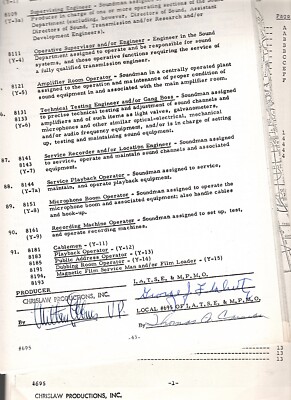 8109 Supervising Engineer - Soundman assigned
(Y-3a) Producer in charge of one or more operating sections of the
Department (excluding, however, Directors of Sound, Assistant
Directors of Sound, Transmission and/or Research and/or
Development Engineers).
8111 Operative Supervisor and/or Engineer - Engineer in the Sound
(Y-4) Department assigned to operate and be responsible for sound
systems, and those operative functions requiring the service of
a fully qualified transmission engineer.
8121 Amplifier Room Operator - Soundman in a centrally operated plant
(Y-2) assigned to the operation and maintenance of proper condition of
sound equipment in and associated with the main amplifier room.
8131 Technical Testing Engineer and/or Gang Boss - Soundman assigned
8133 to precise technical testing and adjustment of sound channels and
(Y-6) amplifiers and of such items as light valves, galvanometers,
microphones and other similar optical-electrical, mechanical
and/or audio frequency equipment, and/or is in charge of setting
up, testing and maintaining sound equipment.
87. 8141 Service Recorder and/or Location Engineer - Soundman assigned
8143 to service, operate and maintain sound channels and associated
(Y-7) equipment.
88. 8144 Service Playback Operator - Soundman assigned to service,
(Y-7a) maintain, and operate playback equipment.
89. 8151 Microphone Boom Operator - Soundman assigned to operate the
(Y-8) microphone boom and associated equipment; also handle cables
and hook-up.
90. 8161 Recording Machine Operator - Soundman assigned to set up, test,
(Y-9) and operate recording machines.
91. 8181 Cablemen - (Y-11)
8183 Playback Operator - (Y-12)
8185 Public Address Operator - (Y-13)
8189 Dubbing Room Operator - (Y-14)
8191 Magnetic Film Service Man and/or Film Loader - (Y-15)
8193
PRODUCER I. A. T. S. E. & M. P. M. O.
CHRISLAW PRODUCTIONS, INC.
LOCAL #695 OF I. A. T. S. E. & M. P. M. O.
By By
8695 -45-
13
13
13
4695 -1-
CHRISLAW PRODUCTIONS, INC.